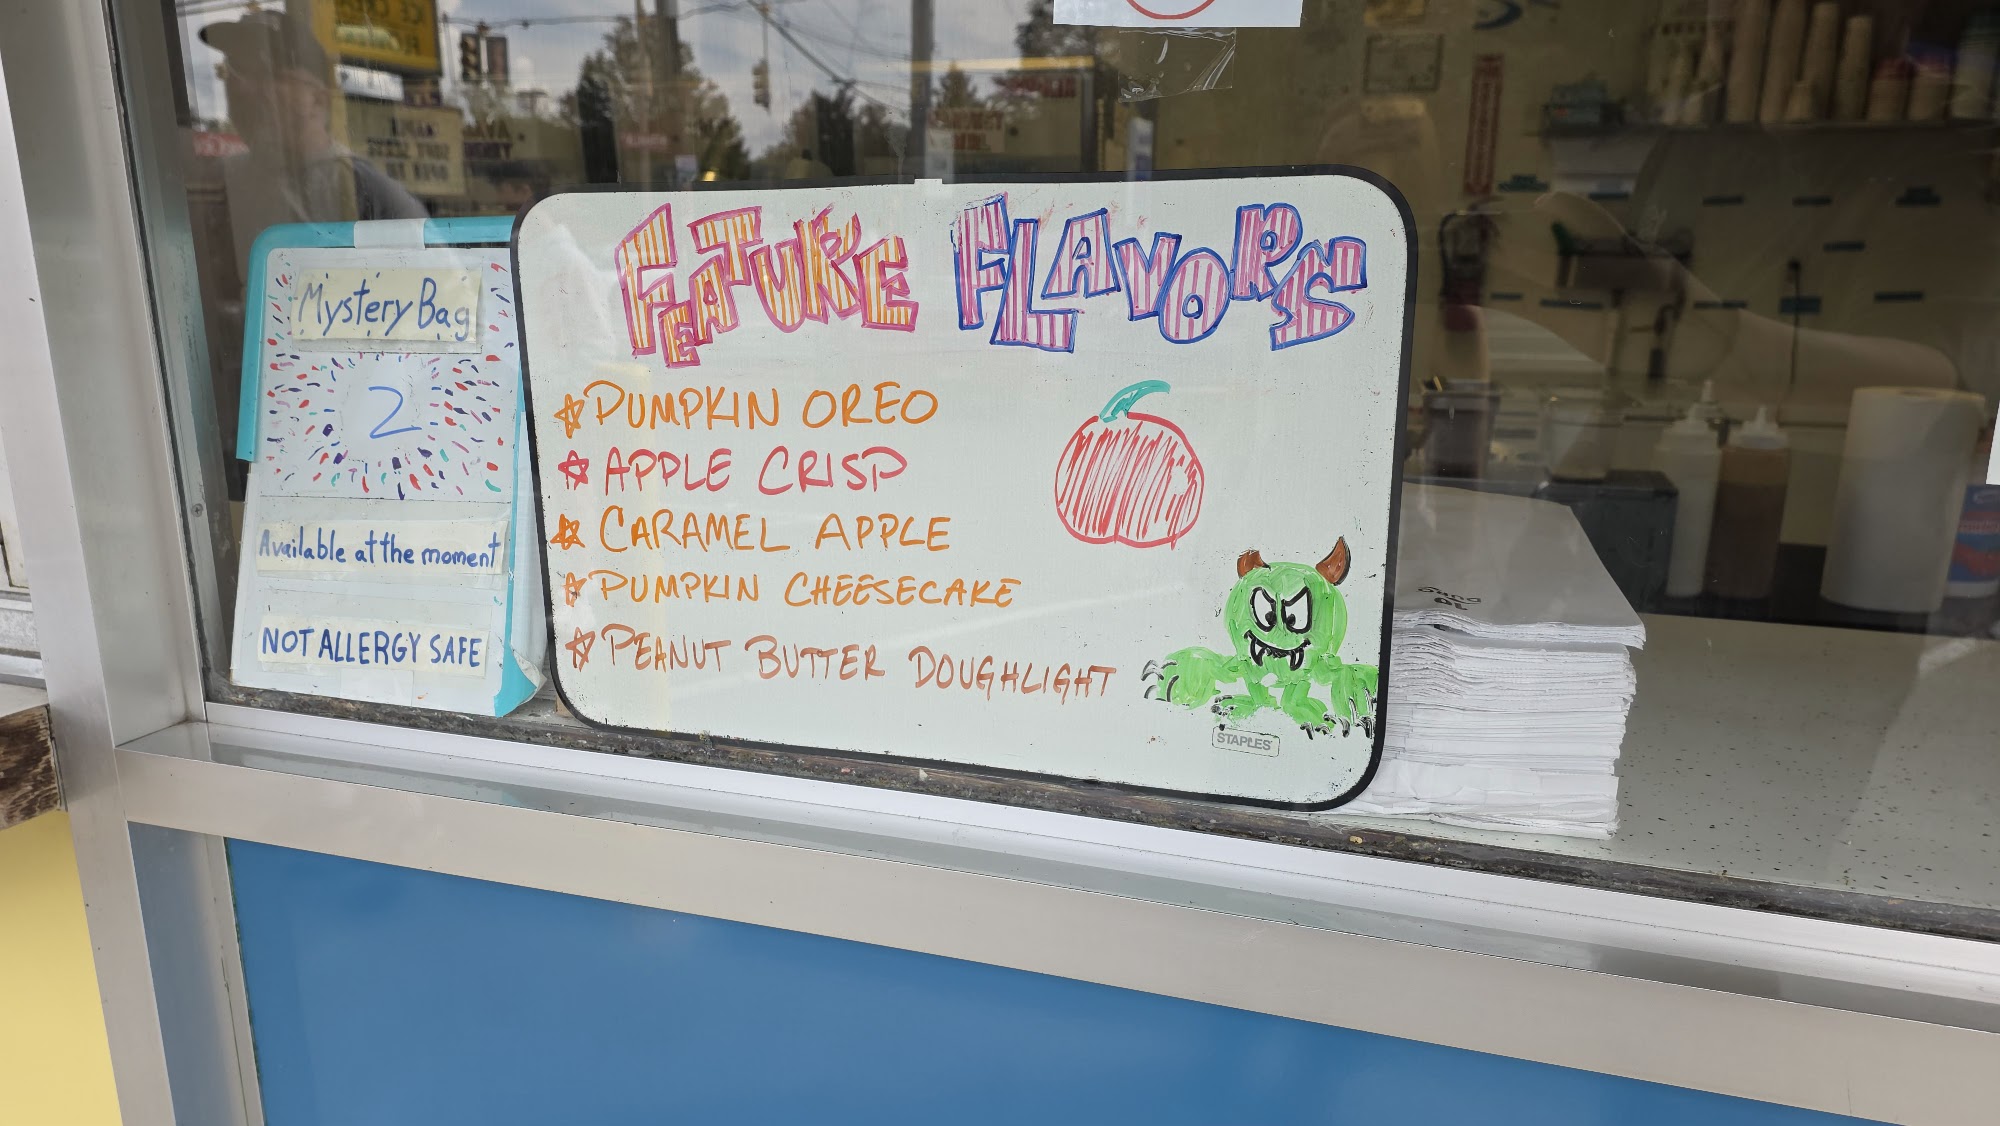 Mystery Bag
2
Available at the moment
NOT ALLERGY SAFE
FEATURE FLAVORS
PUMPKIN OREO
APPLE CRISP
CARAMEL APPLE
PUMPKIN CHEESECAKE
PEANUT BUTTER DOUGHLIGHT
STAPLES